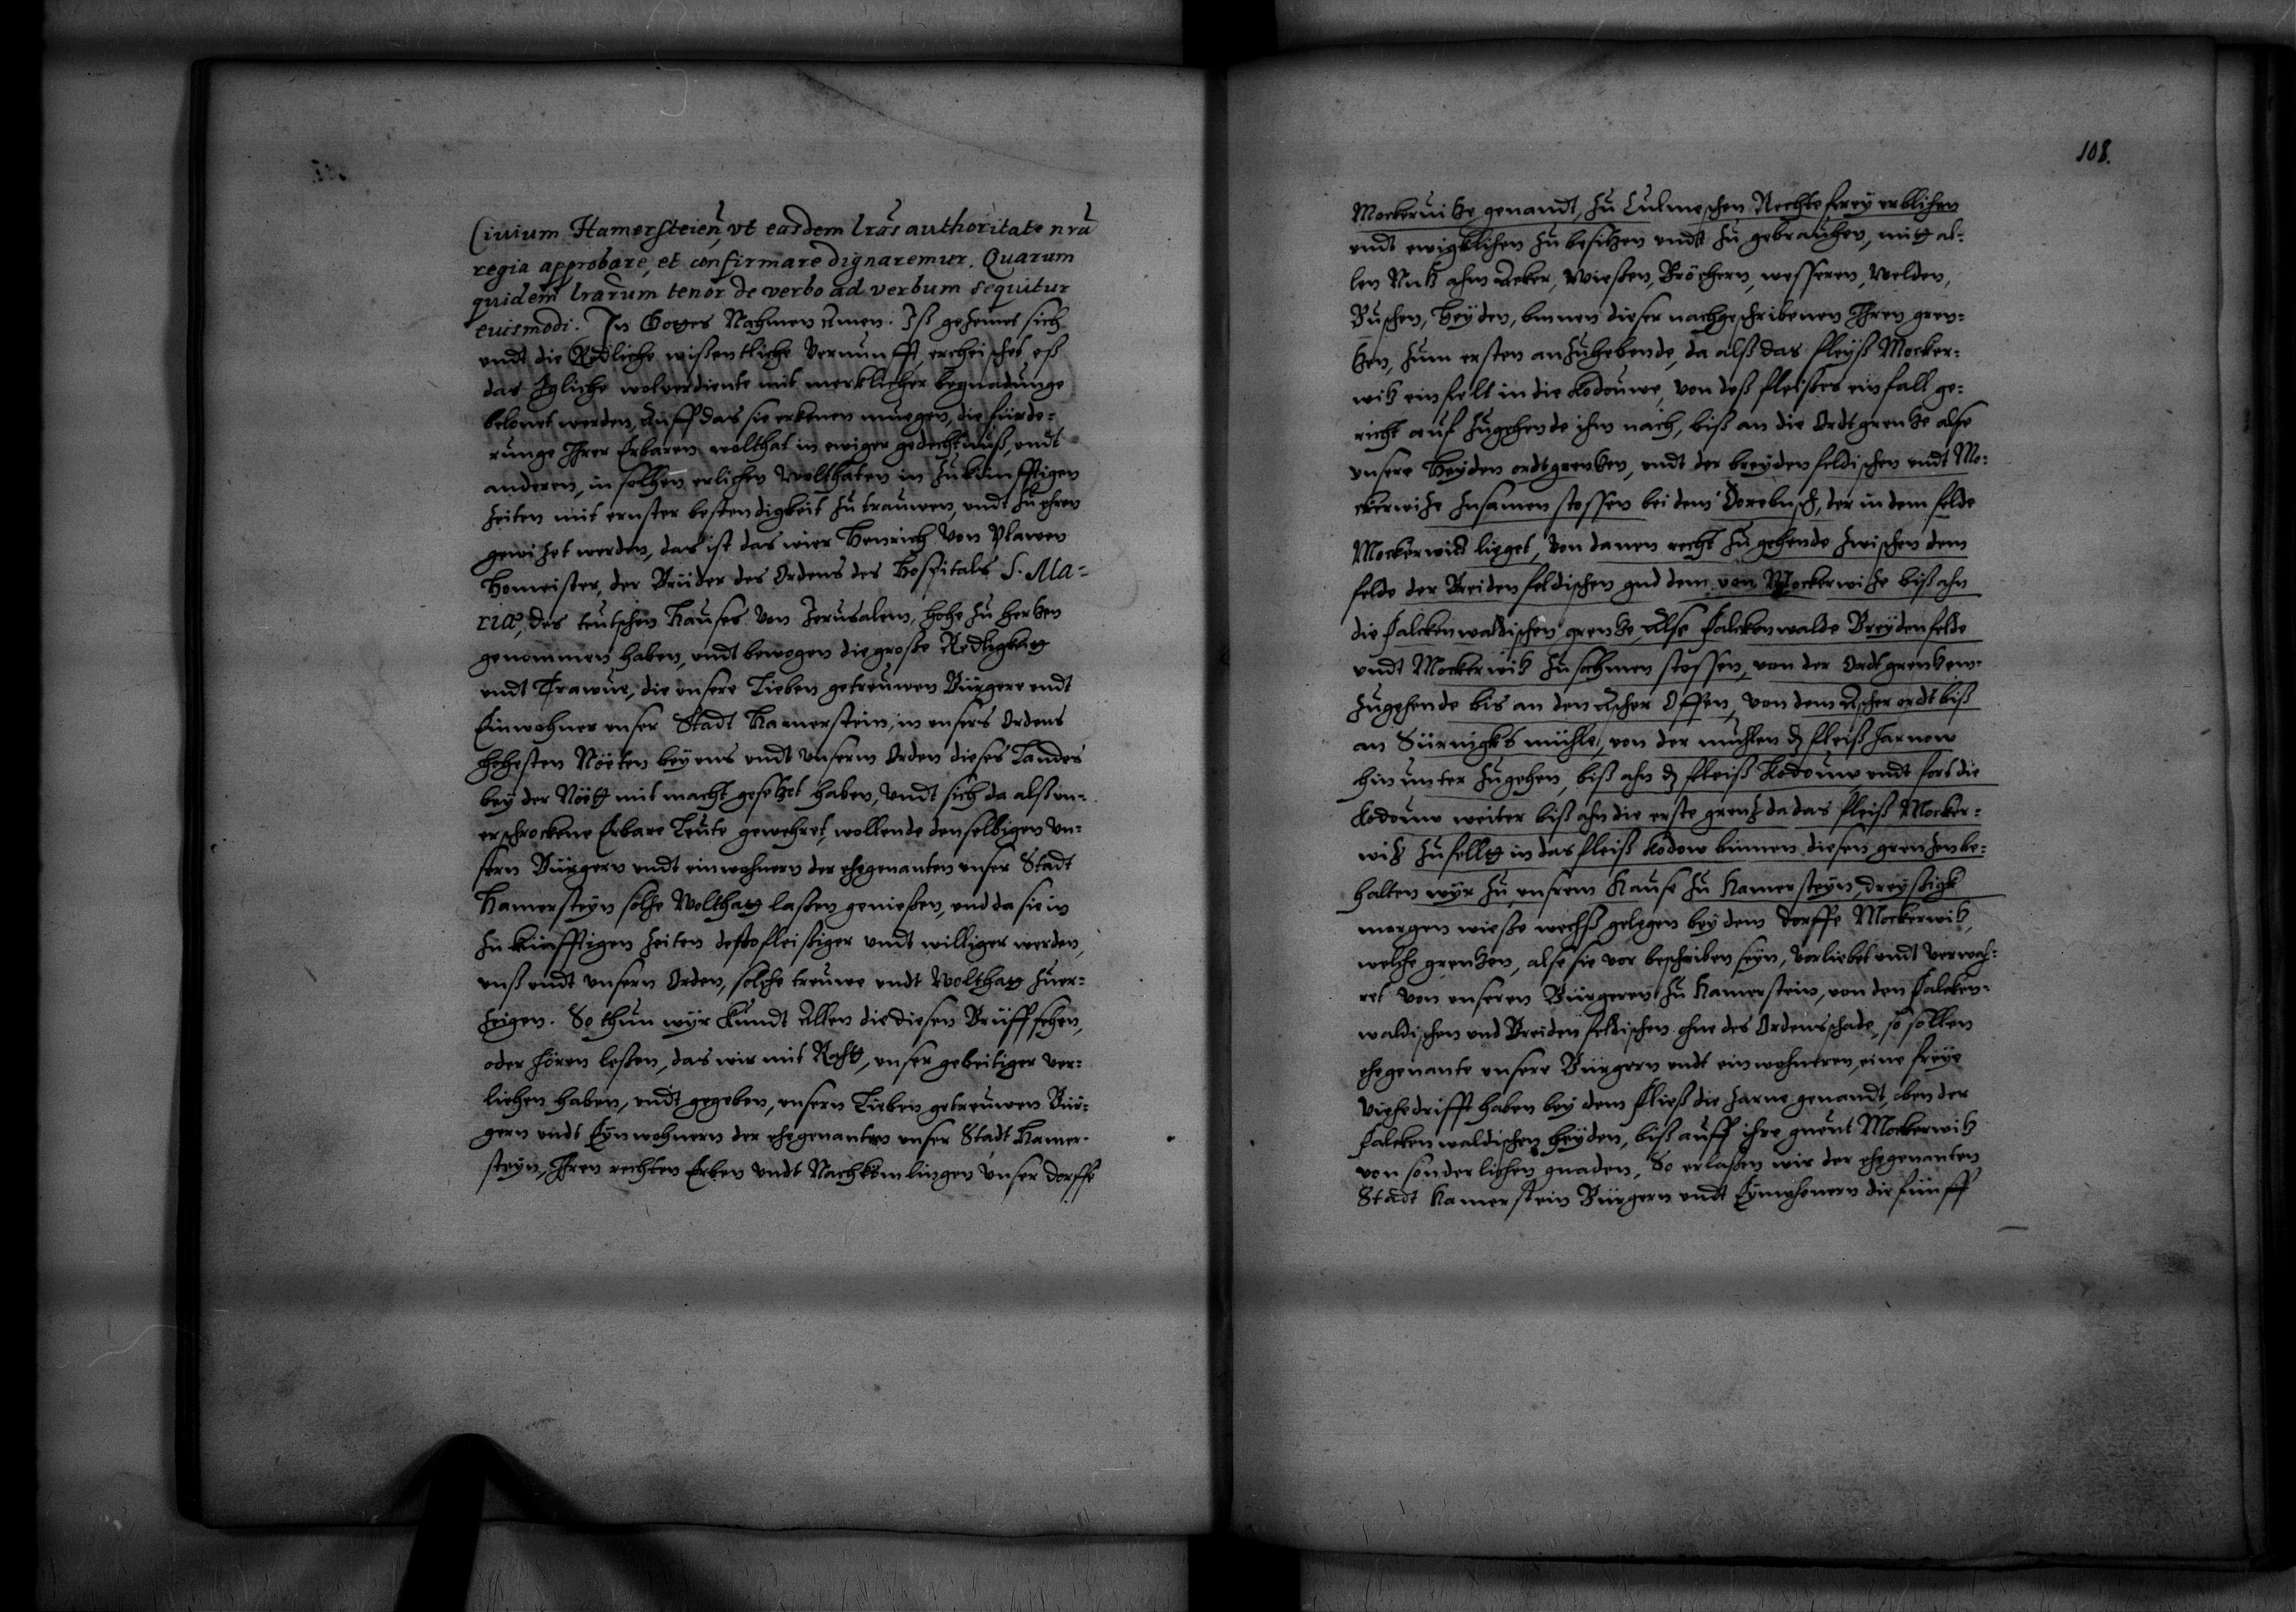 Civium Hamersteien̄, vt easdem lrās authoritate nrā
regia approbare, et confirmare dignaremur. Quarum
quidem lrarum tenor de verbo ad verbum sequitur
euismodi. In Gottes Nahmen Amen. Iß geczimet sich
undt die Redliche wißentliche Vernunfft ercheischet eß
das Igliche wolverdiente mit merklicher begnadunge
belonet werden, Auff das sie erkenen muegen, die fürde-
runge Ihrer Erbaren wolthat in ewiger gedechtnuß, undt
anderen, in solchen erlichen Wolthaten in zukünfftigen
zeiten mit ernster bestendigkeit zu trauwen, undt zu ehren
gereitzet werden, das ist das wier Henrich Von Plawen
Homeister, der Brüder des Ordens des Hospitals S. Ma-
riæ, des teutschen Hauses Von Jerusalem, hohe zu hertzen
genommen haben, undt bewogen die große Redligkeitt
undt Trawue, die unsere Lieben getreuwen Bürgere undt
Einwohner unser Stadt Hamerstein, in unsers Ordens
hohesten Nöeten bey uns undt unserm Orden dieses Landes
bey der Nöett mit macht gesetzet haben, undt sich da alß un-
erschrockene Erbare Leute gewehret, wollende denselbigen Un-
sern Bürgern undt einwohnern der ehegenanten unser Stadt
Hamersteyn solche Wolthatt laßen genießen, und da sie in
zu künfftigen zeiten desto fleißiger undt williger werden,
unß undt unsern Orden, solche treuwe undt Wolthatt zuer-
zeigen. So thun wyr Kundt Allen die diesen Brüff sehen,
oder hören leßen, das wir mit Rahtt, unser gebeitiger ver-
liehen haben, undt gegeben, unsern Lieben getreuwen Bür-
gern undt Eynwohnern der ehegenanten unser Stadt Hamer-
steyn, Ihren rechten Erben undt Nachkömlingen unser dorffe
108.
Mockerwitze genandt, zu Culmeschen Rechte frey erblichen
undt ewigklichen zu besitzen undt zu gebrauchen, mitt al-
len Nutz ahm Acker, Wießen, Bröchern, wesseren, Welden,
Buschen, Heyden, binnen dieser nachgeschribenen Ihren gren-
tzen, zum ersten anzuhebende, da alß das fleyß Mocker-
witz einfelt in die Kodouwe, von deß fleißes einfall ge-
richt auf zugehende ihm nach, biß an die Ordtgrentze alse
unsere Heyden ordtgrentzen, undt der breydenfeldischen undt Mo-
ckerwitze zusamen stossen bei dem Dorebusch, der in dem felde
Mockerwitz lieget, Von danen recht zu gehende zwischen dem
felde der Breidenfeldischen und dem von Mockerwitze biß ahn
die Falckenwaldischen grentze, Alse Falckenwalde Breydenfelde
undt Mockerwitz zusahmen stossen, von der Ordtgrentzen-
zugehende bis an den Ascher Offen, Von dem Ascher ordt biß
an Sürnigks mühle, von der muhlen dz fleiß Zarnow
hinunter zugehen, biß ahn dz fleiß Kodouw undt fort die
Kodouw weiter biß ahn die erste grentz da das fleiß Mocker-
witz zufellt in das fleiß Kodow binnen diesen grentzen be-
halten wyr zu unsrem Hause zu Hamersteyn, dreyßigk
morgen wieße wechß gelegen bey dem dorffe Mockerwitz,
welche grentzen, alse sie vor beschriben seyn, Vorliebet undt verwah-
ret von unseren Bürgeren zu Hamerstein, von den Falcken-
waldischen und Breidenfeldischen ohne des Ordens schade, so sollen
ehegenante unsere Bürgern undt einwohneren, eine freye
Viehedrifft haben bey dem fließ die Zarne genandt, oben der
Falckenwaldischen heyden, biß auff ihre Mockerwitz
von sonderlichen gnaden. So erlaßen wir der ehegenanten
Stadt Hamerstein Bürgern undt Eynwohnern die fünff